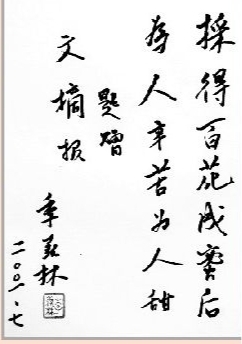 採得百花成蜜后
为人辛苦为人甜
題贈
文摘报
季羡林
二〇〇一·七